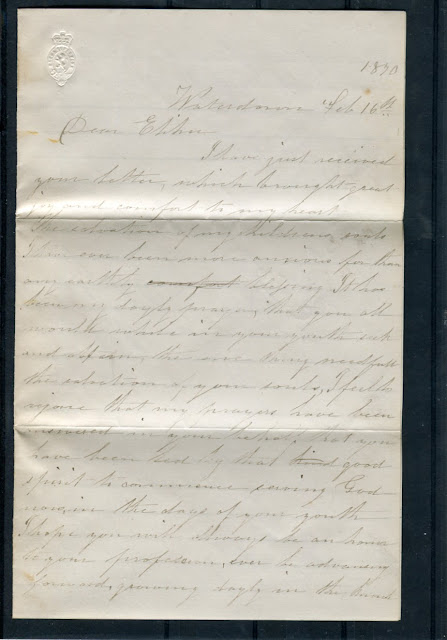 1870
Waterdown Feb 16th
Dear Elihu
I have just received
your letter, which brought great
joy and comfort to my heart
The salvation of my childrens souls
I have ever been more anxious for than
any earthly comfort blessing It has
been my dayly prayer, that you all
would while in your youth seek
and obtain, the one thing needfull
the salvation of your souls, I feel to
rejoice that my prayers have been
answered in your behalf, that you
have been led by that kind good
spirit to commence serving God
now in the days of your youth
I hope you will always be an honor
to your profession, ever be advancing
forward, growing dayly in the